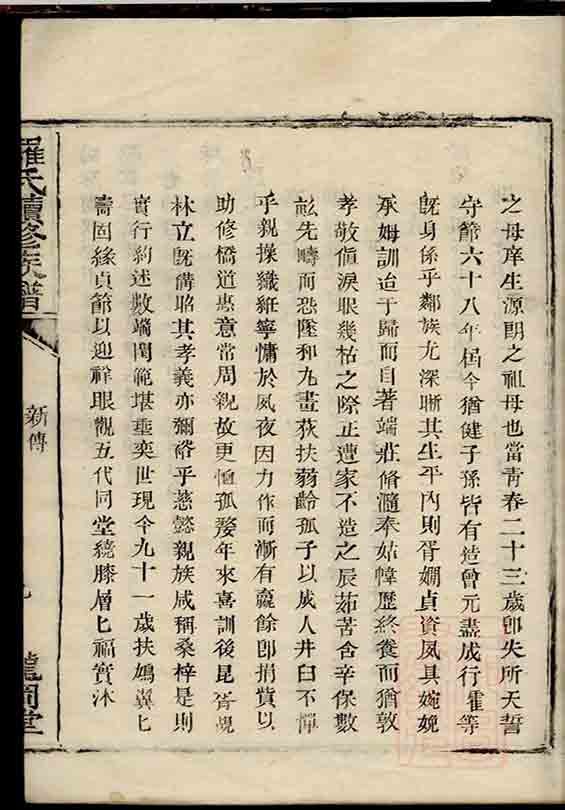 之母庠生源朗之祖母也當青春二十三歲卽失所天誓
守節六十八年屆今猶健子孫皆有造曾元盡成行霍等
旣身係乎鄰族尤深晰其生平內則胥嫺貞資夙具婉娩
承姆訓迨于歸而自著端莊脩瀡奉姑幃歷終養而猶敦
孝敬傎淚眼幾枯之際正遭家不造之辰茹苦含辛保數
畝先疇而恐墜和九畫荻扶弱齡孤子以成人井臼不憚
乎親操織絍寧慵於夙夜因力作而漸有嬴餘卽捐貲以
助修橋道惠意常周親故更憫孤嫠年來喜訓後昆胥覩
林立旣媾昭其孝義亦彌俗乎慈懿親族咸稱桑梓是則
實行約述數端閫範堪垂奕世現今九十一歲扶鳩冀匕
壽固緣貞節以迎祥眼觀五代同堂繞膝層匕福實沐
羅氏續修族譜
新傳
九
龍岡堂